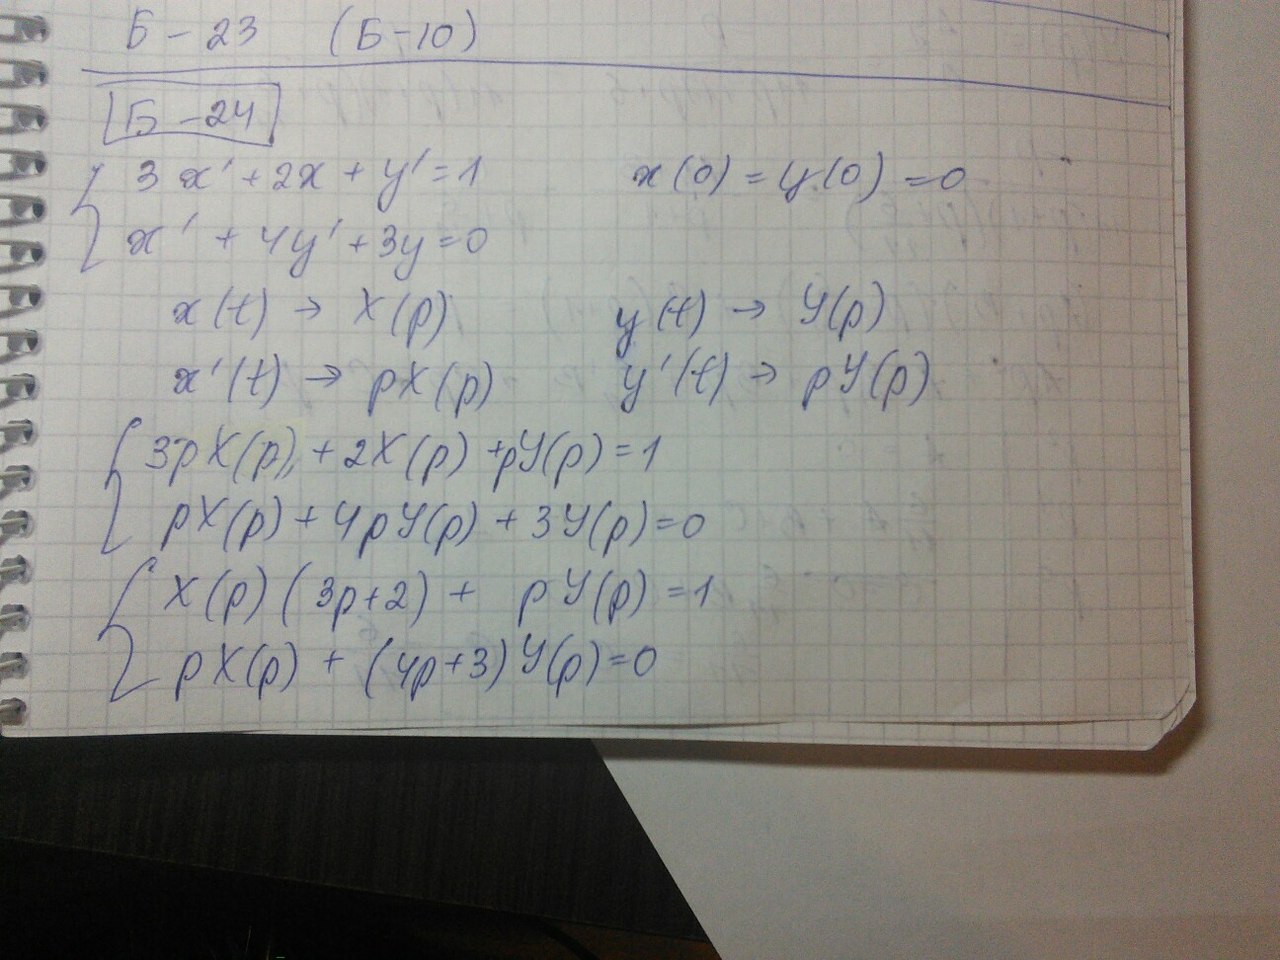 Б - 23 (Б-10)
Б - 24
3x' + 2x + y' = 1 x(0) = y(0) = 0
x' + 4y' + 3y = 0
x(t) → X(p) y(t) → Y(p)
x'(t) → pX(p) y'(t) → pY(p)
3pX(p) + 2X(p) + pY(p) = 1
pX(p) + 4pY(p) + 3Y(p) = 0
X(p)(3p+2) + pY(p) = 1
pX(p) + (4p+3)Y(p) = 0